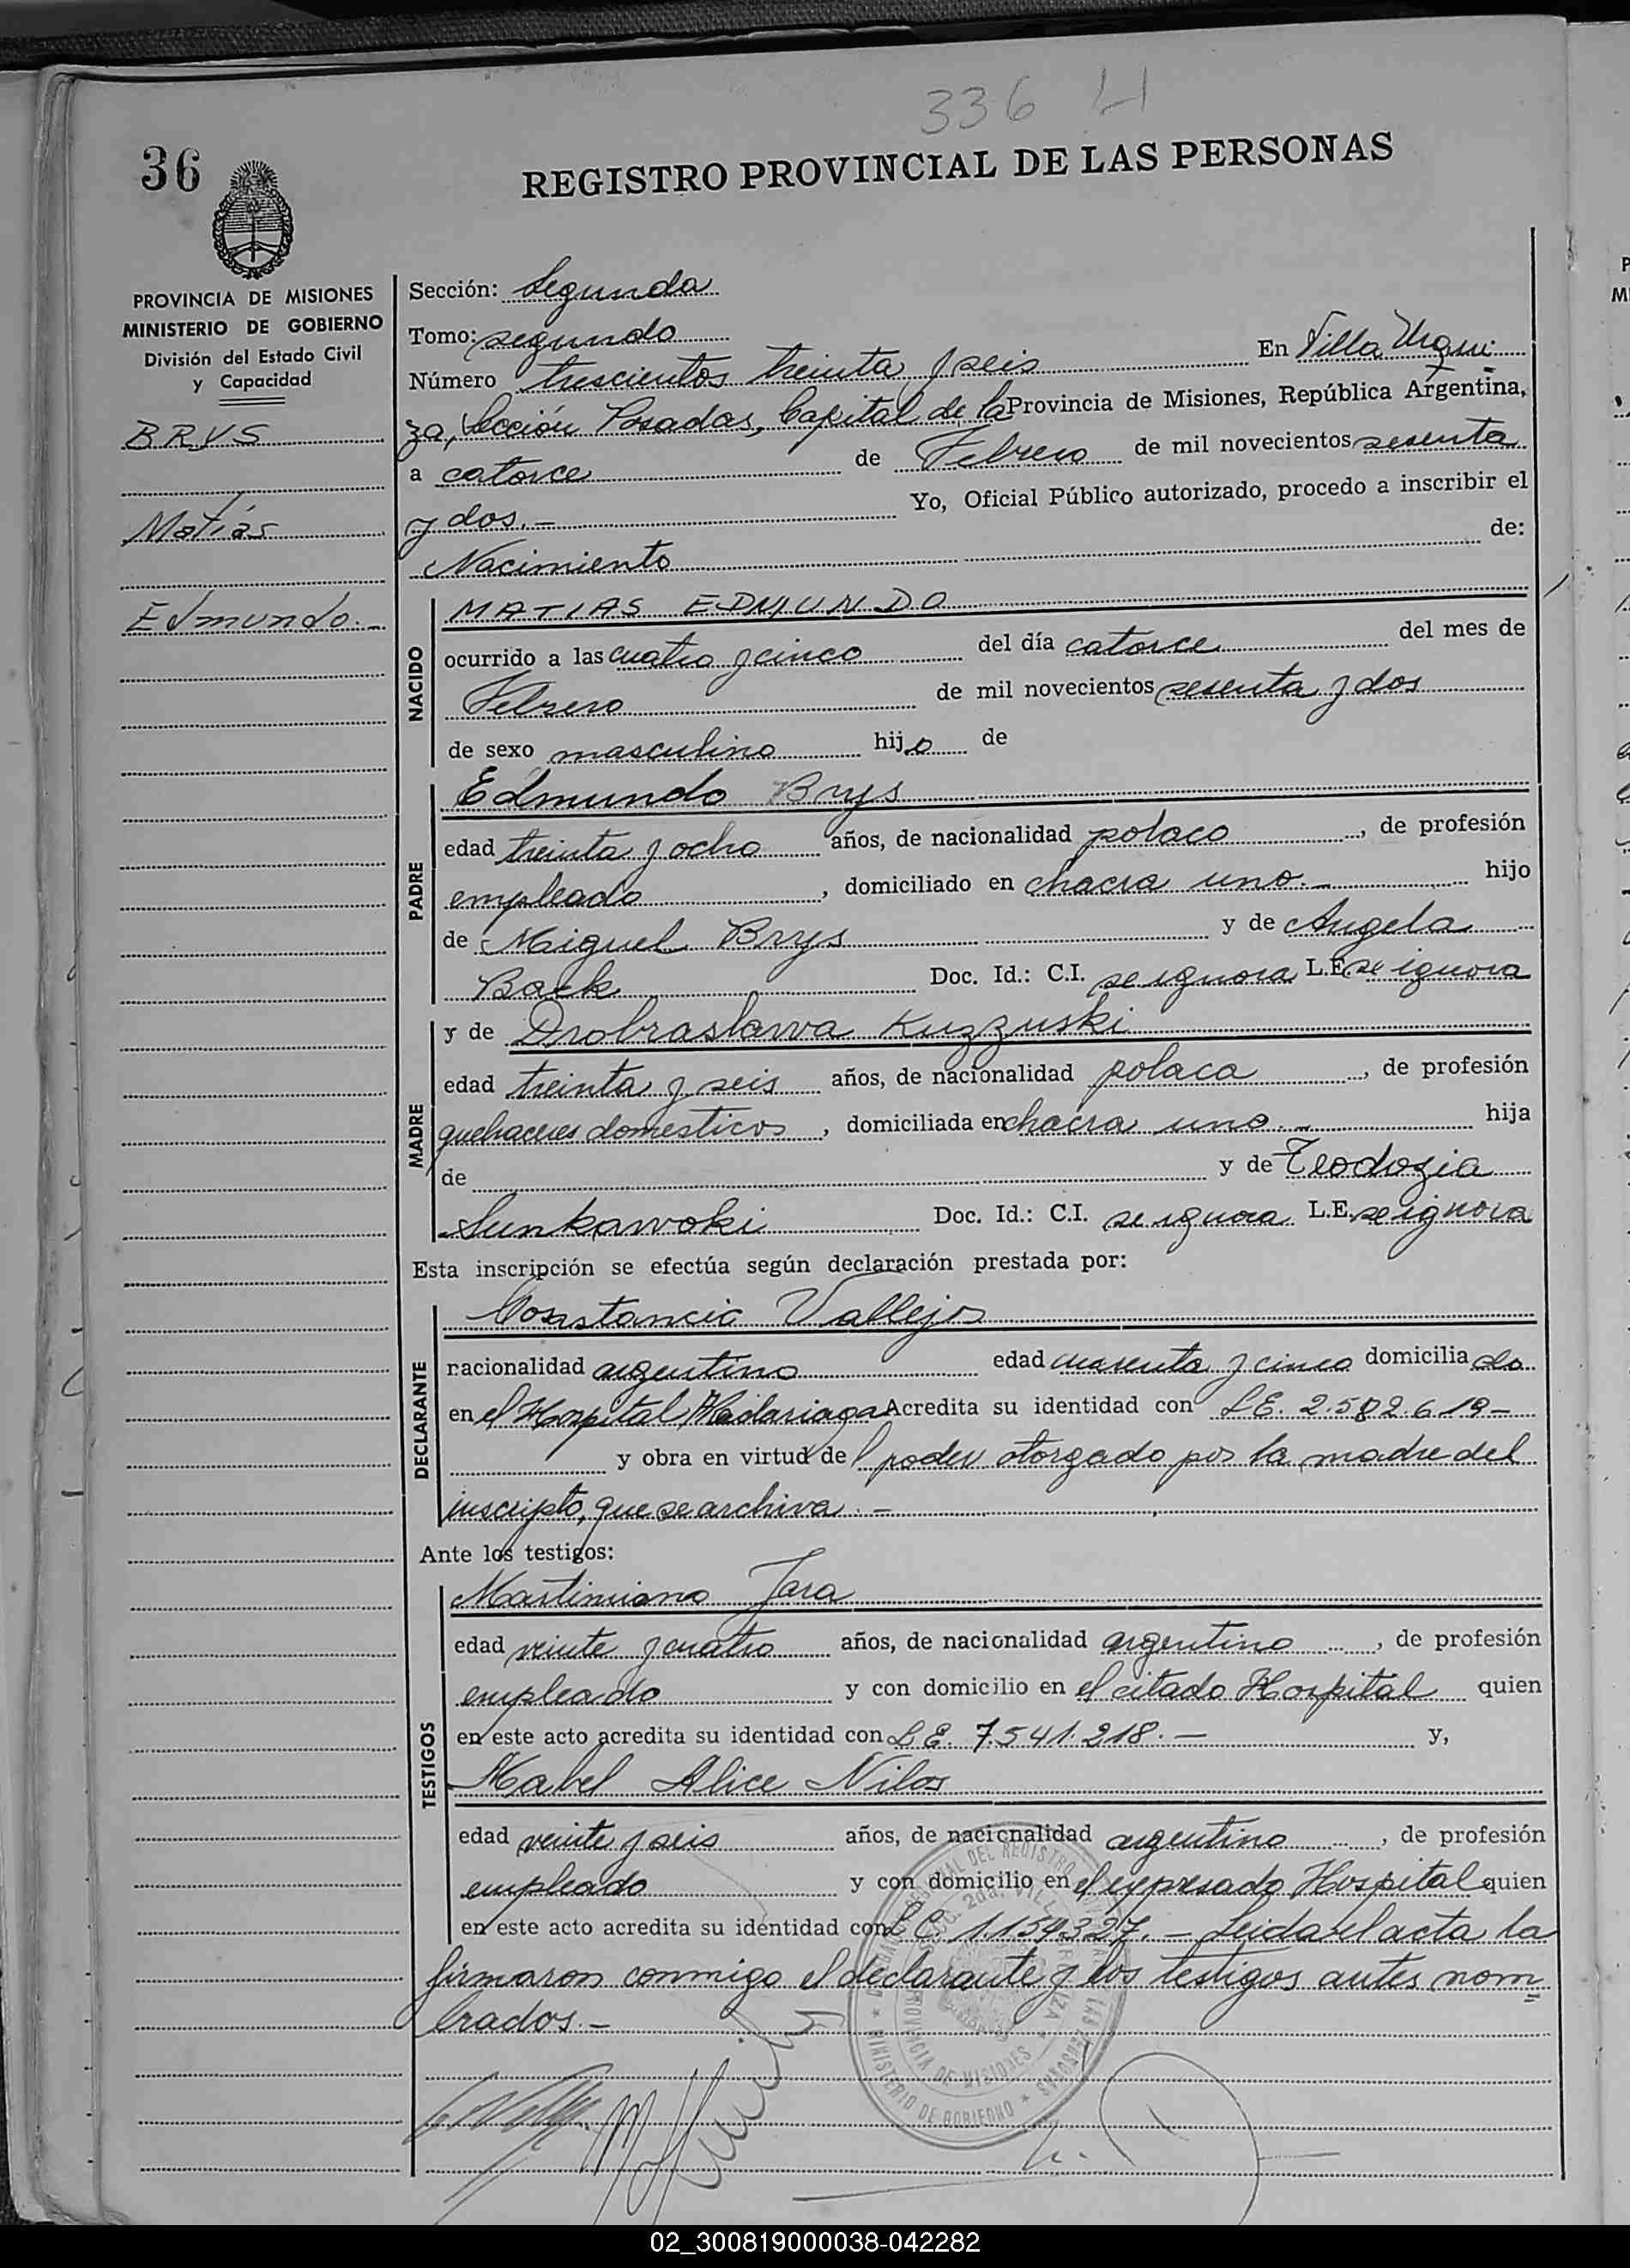 336
36
REGISTRO PROVINCIAL DE LAS PERSONAS
PROVINCIA DE MISIONES
MINISTERIO DE GOBIERNO
División del Estado Civil
y Capacidad
BRYS
Matías
Edmundo.-
Sección: Segunda
Tomo: segundo
Número trescientos treinta y seis En Villa Urqui
za, Sección Posadas, Capital de la Provincia de Misiones, República Argentina,
a catorce de Febrero de mil novecientos sesenta
y dos.- Yo, Oficial Público autorizado, procedo a inscribir el
Nacimiento de:
NACIDO
MATIAS EDMUNDO
ocurrido a las cuatro y cinco del día catorce del mes de
Febrero de mil novecientos sesenta y dos
de sexo masculino hijo de
PADRE
Edmundo Brys
edad treinta y ocho años, de nacionalidad polaco, de profesión
empleado, domiciliado en chacra uno.- hijo
de Miguel Brys y de Angela
Back Doc. Id.: C.I. se ignora L.E. se ignora
MADRE
y de Drobraslawa Kuzzuski
edad treinta y seis años, de nacionalidad polaca, de profesión
quehaceres domesticos, domiciliada en chacra uno.- hija
de y de Teodozia
Sunkawoki Doc. Id.: C.I. se ignora L.E. se ignora
Esta inscripción se efectúa según declaración prestada por:
DECLARANTE
Constancio Vallejos
nacionalidad argentino edad cuarenta y cinco domiciliado
en el Hospital Madariaga Acredita su identidad con L.E. 2.582.619-
y obra en virtud del poder otorgado por la madre del
inscripto, que se archiva.-
Ante los testigos:
TESTIGOS
Martiniano Jara
edad veinte y cuatro años, de nacionalidad argentino, de profesión
empleado y con domicilio en el citado Hospital quien
en este acto acredita su identidad con L.E. 7.541.218.- y,
Mabel Alice Nilos
edad veinte y seis años, de nacionalidad argentino, de profesión
empleado y con domicilio en el expresado Hospital quien
en este acto acredita su identidad con L.C. 1.154327.- Leida el acta la
firmaron conmigo el declarante y los testigos antes nom
brados.-
MINISTERIO DE GOBIERNO
PROVINCIA DE MISIONES
02_300819000038-042282